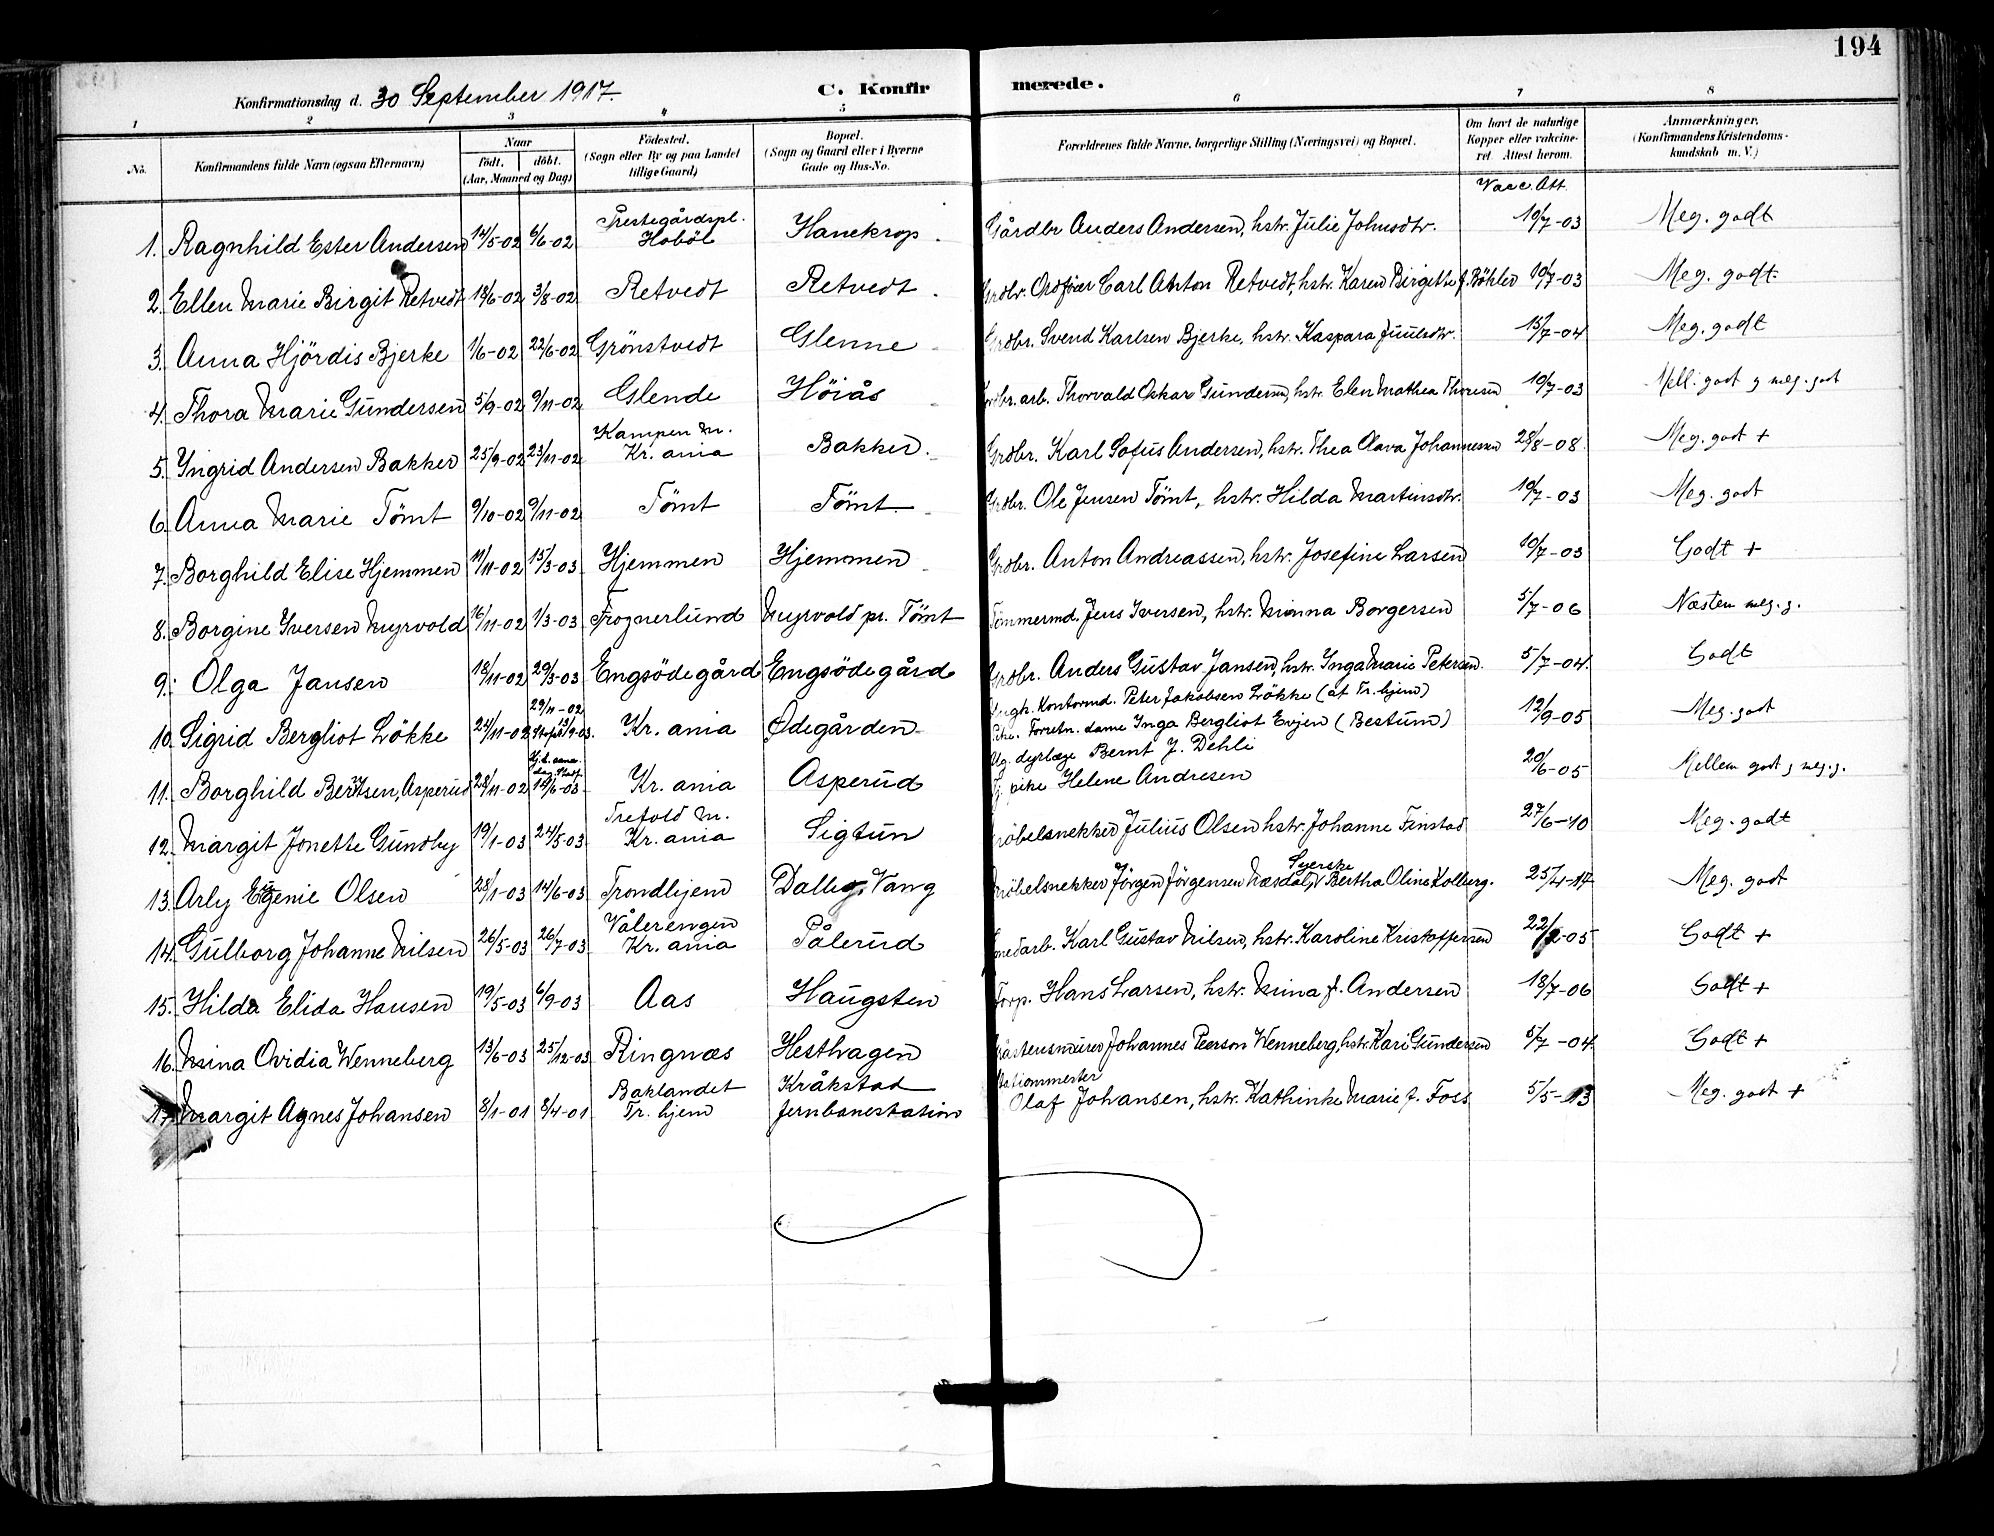 194
Konfirmationsdag d. 30 September 1917. C. Konfir merede.
1 2 3 4 5 6 7 8
No. Konfirmandens fulde Navn (ogsaa Efternavn) Naar födt. döbt. (Aar, Maaned og Dag) Födested. (Sogn eller By og paa Landet tillige Gaard) Bopæl. (Sogn og Gaard eller i Byerne Gade og Hus-No. Forældrenes fulde Navne, borgerlige Stilling (Næringsvei) og Bopæl. Om havt de naturlige Kopper eller vakcineret. Attest herom. Anmærkninger. (Konfirmandens Kristendomskundskab m. V.)
Vacc. Att.
1. Ragnhild Ester Andersen 14/5-02 6/6-02 Prestegårdspl. Hobøl Hanekrop Gårdbr Anders Andersen, hstr. Julie Johnsdtr. 10/7-03 Meg. godt
2. Ellen Marie Birgit Retvedt 18/6-02 3/8-02 Retvedt Retvedt Grdbr. Ordfører Carl Anton Retvedt, hstr. Karen Birgitte f. Böhler 10/7-03 Meg. godt
3. Anna Hjördis Bjerke 1/6-02 22/6-02 Grönstvedt Glenne Grdbr. Svend Karlsen Bjerke, hstr. Kaspara Juulsdtr. 15/7-04 Meg. godt
4. Thora Marie Gundersen 5/9-02 9/11-02 Glende Höiås Jordbr. arb. Thorvald Oskar Gundersen, hstr Elen Mathea Thoresen 10/7-03 Mell. godt g meg. godt
5. Yngrid Andersen Bakker 25/9-02 23/11-02 Kampen M. Kr. ania Bakker. Grdbr. Karl Sofus Andersen, hstr. Thea Olava Johannessen 28/8-08. Meg. godt +
6. Anna Marie Tömt 9/10-02 9/11-02 Tömt Tömt Grdbr. Ole Jensen Tömt, hstr. Hilda Martinsdtr. 10/7-03 Meg. godt
7. Borghild Elise Hjemmen 11/11-02 15/3-03 Hjemmen Hjemmen Grdbr. Anton Andreassen, hstr. Josefine Larsen 10/7-03 Godt +
8. Borgine Iversen Myrvold 16/11-02 1/3-03 Frognerlund Myrvold pr. Tömt Tömmermd. Jens Iversen, hstr. Minna Borgersen 5/7-06 Næsten meg. g.
9. Olga Jansen 18/11-02 29/3-03 Engsödegård Engsödegård Grdbr. Anders Gustav Jansen, hstr. Inga Marie Petersen. 5/7-04. Godt
10. Sigrid Bergliot Lökke 24/11-02 29/11-02 13/9-03. Kr. ania Ödegården Ungk. Kontormd. Peter Jakobsen Lökke (at Tr. hjem) Forretn. dame Inga Bergliot Evjen (Bestum) 12/9-05 Meg. godt
11. Borghild Berntsen, Asperud 28/11-02 14/6-03 Kr. ania Asperud Ug. dyrlæge Bernt J. Dehli pike Helene Andresen 20/6-05 Mellem godt g meg. g.
12. Margit Jonette Gundby 19/1-03 24/5-03 Trefold M. Kr. ania Sigtun Möbelsnekker Julius Olsen hstr. Johanne Finstad 27/6-10 Meg. godt
13. Arly Eugenie Olsen 28/1-03 14/6-03 Trondhjem Dalbg, Vang Möbelsnekker Jörgen Jörgensen Næsdal, Syerske Bertha Oline Kolberg. 25/4-14 Meg. godt
14. Gulborg Johanne Nilsen 26/5-03 26/7-03 Vålerengen Kr. ania Pålerud Smedarb. Karl Gustav Nilsen, hstr. Karoline Kristoffersen 22/2-05 Godt +
15. Hilda Elida Hansen 19/5-03 6/9-03 Aas Haugsten Forp. Hans Larsen, hstr. Mina f. Andersen 18/7-06 Godt +
16. Mina Ovidia Wenneberg 13/6-03 25/12-03 Ringnæs Hesthagen Gråstensmurer Johannes Peerson Wenneberg, hstr. Kari Gundersen 5/7-04 Godt +
17. Margit Agnes Johansen 8/1-01 8/4-01 Baklandet Tr. hjem Kråkstad Jernbanestation Stationmester Olaf Johansen, hstr. Kathinke Marie f. Foss 5/5-13 Meg. godt +